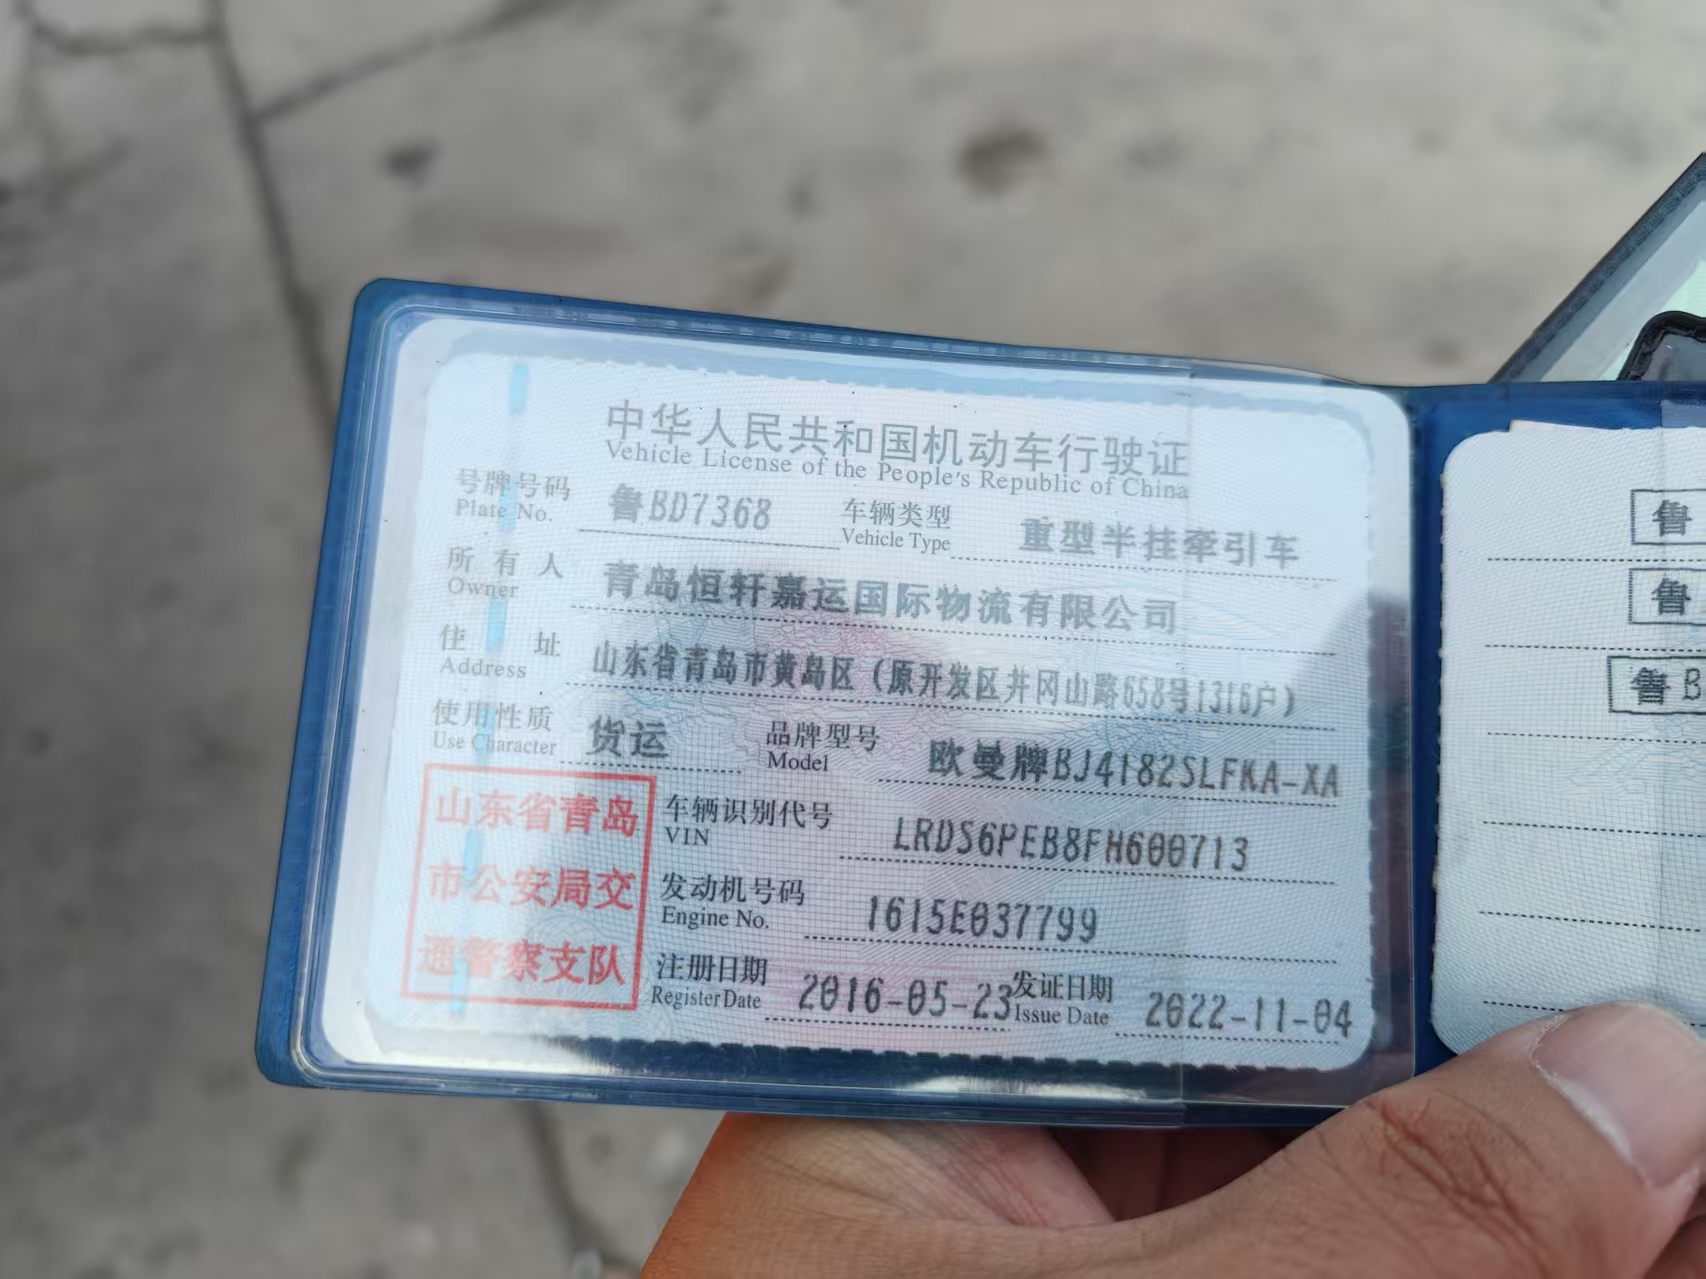 中华人民共和国机动车行驶证
Vehicle License of the People's Republic of China
号牌号码 鲁BD7368 车辆类型 重型半挂牵引车
Plate No. Vehicle Type
所有人 青岛恒轩嘉运国际物流有限公司
Owner
住址 山东省青岛市黄岛区(原开发区井冈山路658号1316户)
Address
使用性质 货运 品牌型号 欧曼牌BJ4182SLFKA-XA
Use Character Model
山东省青岛
市公安局交
通警察支队
车辆识别代号 LRDS6PEB8FH600713
VIN
发动机号码 1615E037799
Engine No.
注册日期 2016-05-23 发证日期 2022-11-04
Register Date Issue Date
鲁
鲁
鲁B